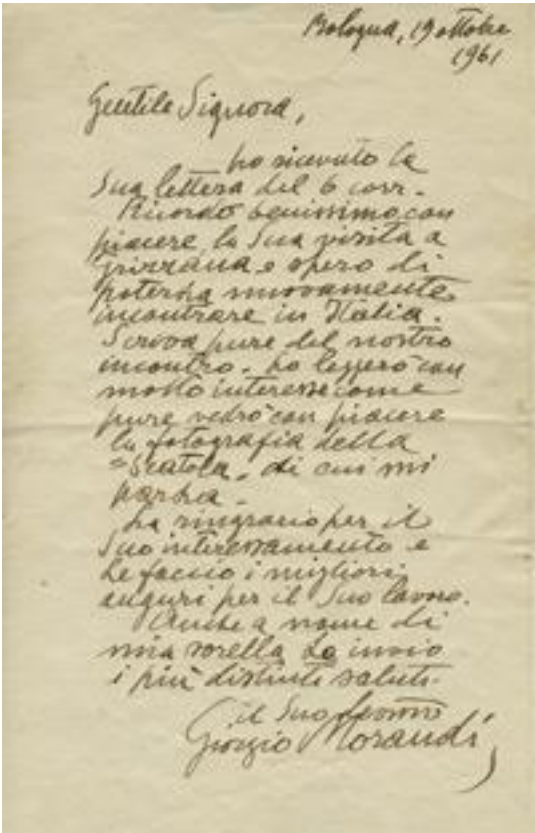 Bologna, 19 ottobre
1961
Gentile Signora,
ho ricevuto la
Sua lettera del 6 corr.
Ricordo benissimo con
piacere la Sua visita a
Grizzana e spero di
poterLa nuovamente
incontrare in Italia.
Scriva pure del nostro
incontro. Lo leggerò con
molto interesse come
pure vedrò con piacere
la fotografia della
"Scatola" di cui mi
parla.
La ringrazio per il
Suo interessamento e
Le faccio i migliori
auguri per il Suo lavoro.
Anche a nome di
mia sorella Le invio
i più distinti saluti.
il Suo devmo
Giorgio Morandi